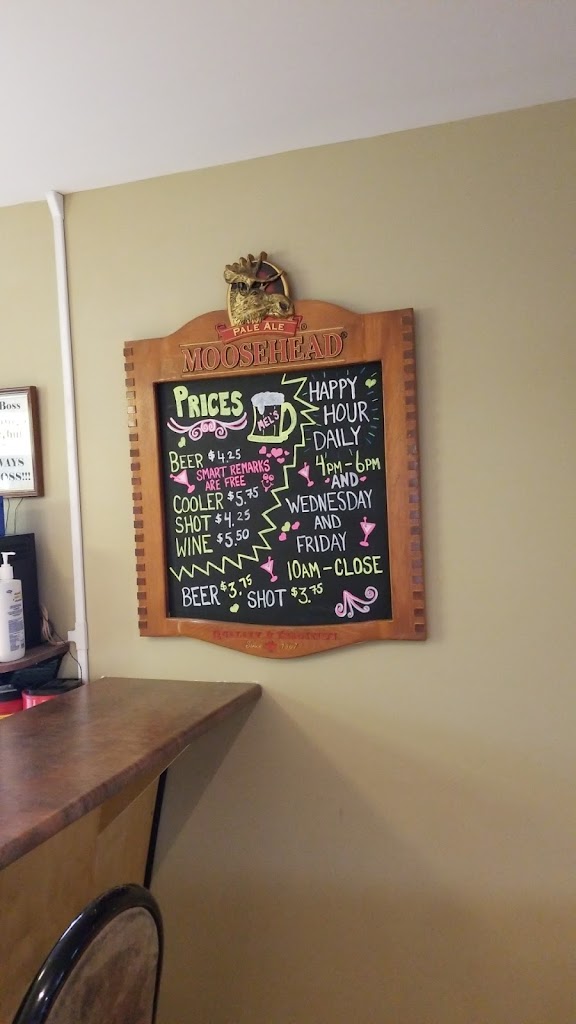 PALE ALE
MOOSEHEAD
PRICES
MEL'S
BEER $4.25
SMART REMARKS
ARE FREE
COOLER $5.75
SHOT $4.25
WINE $5.50
HAPPY
HOUR
DAILY
4PM-6PM
AND
WEDNESDAY
AND
FRIDAY
10AM-CLOSE
BEER $3.75 SHOT $3.75
Since 1867
Boss